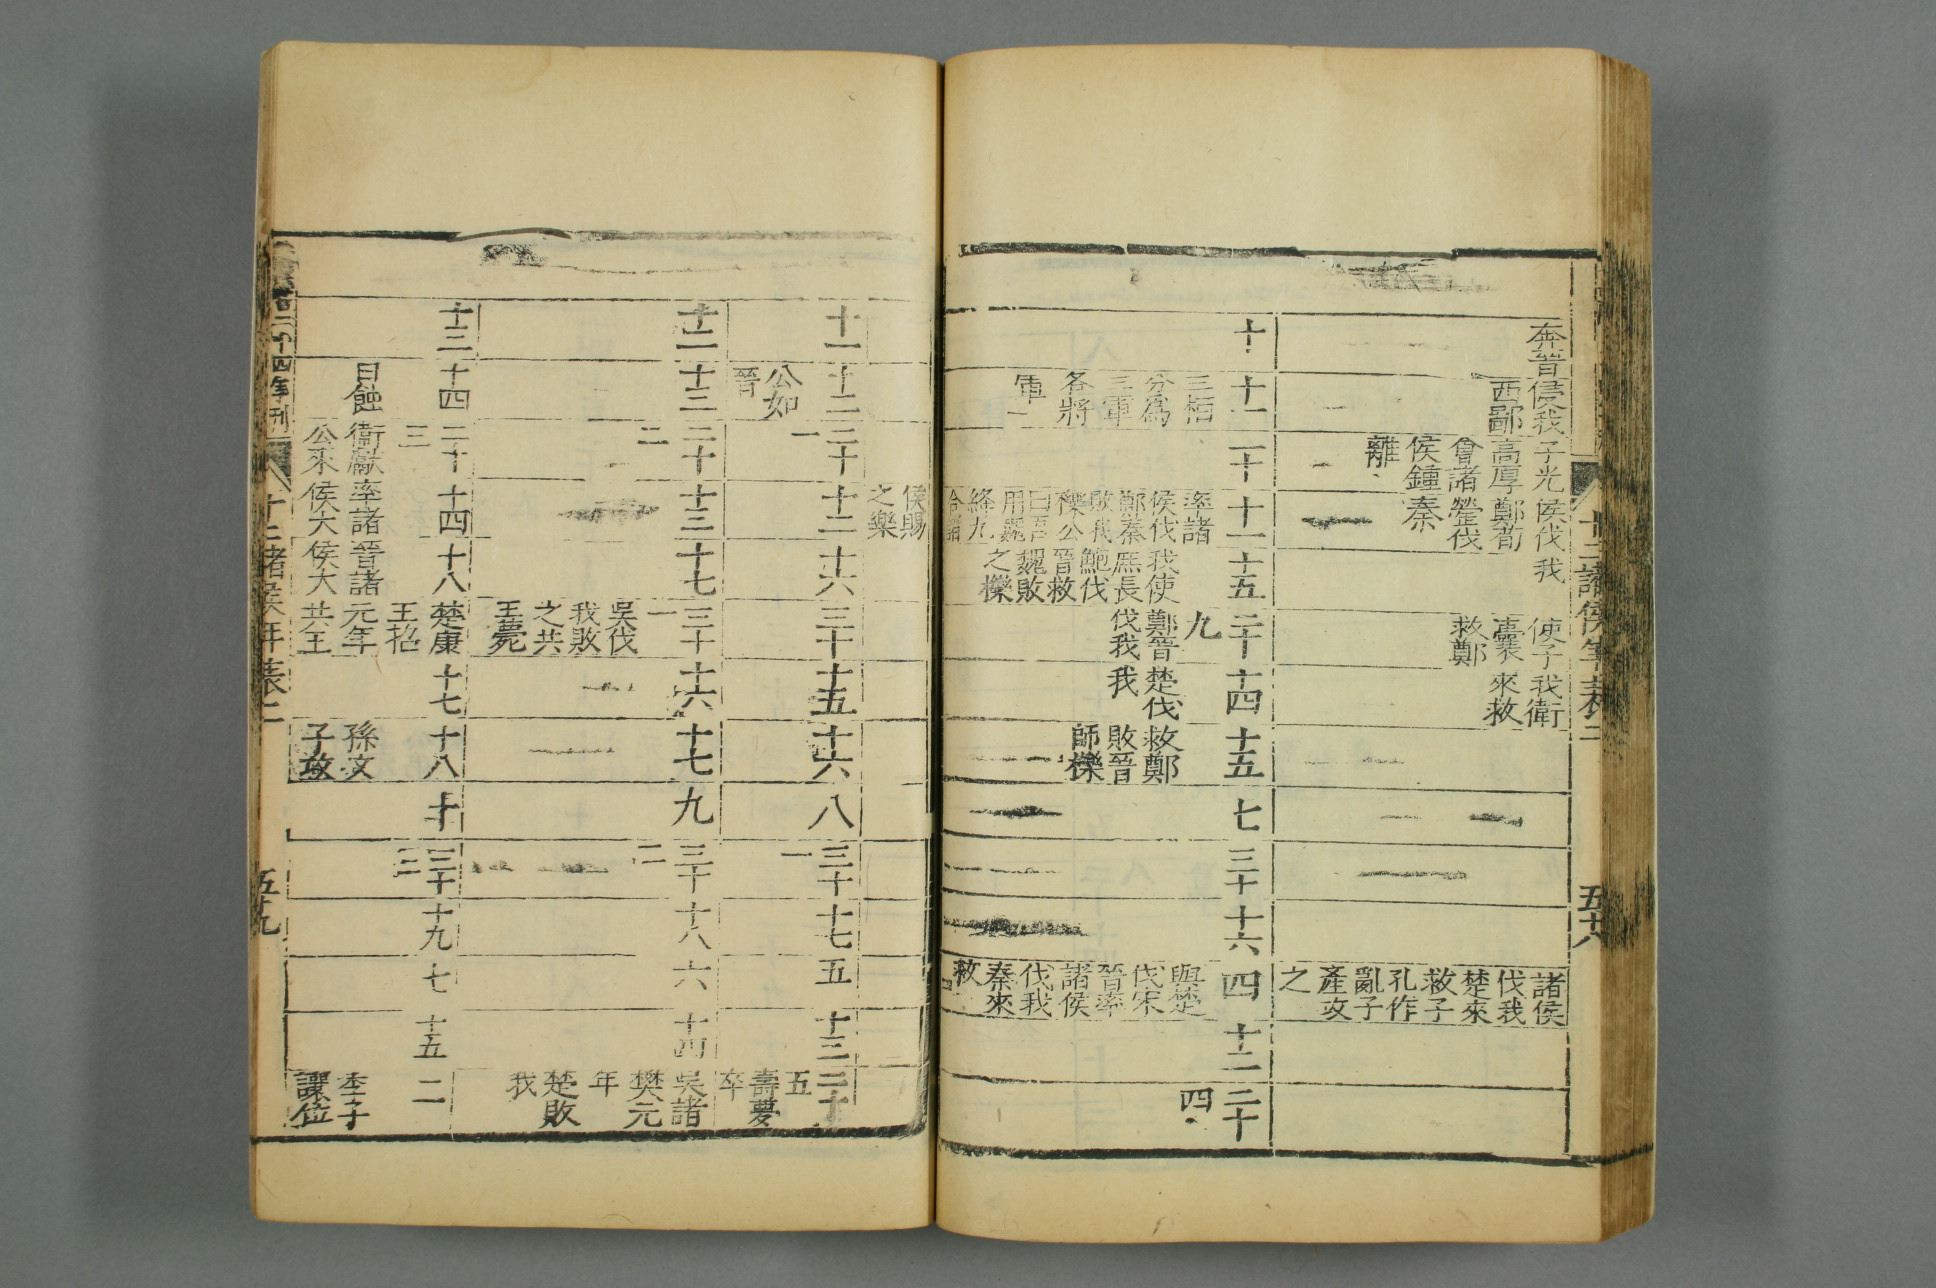 十二諸侯年表二
五十八
奔晉
侵我
西鄙
子光
高厚
會諸
侯鍾
離
侯伐
鄭荀
罃伐
秦
我
使子
囊
救鄭
我衛
來救
諸侯
伐我
楚來
救子
孔作
亂子
產攻
之
十
十一
三桓
分為
三軍
各將
軍
二十
十一
率諸
侯伐
鄭秦
敗我
櫟公
曰吾
用魏
絳九
合諸
十五
我使
庶長
鮑伐
晉救
魏敗
之櫟
二十
九
鄭晉
伐我
十四
楚伐
我
十五
救鄭
敗晉
師櫟
七
三十
十六
四
與楚
伐宋
晉率
諸侯
伐我
秦來
救
十二
二十
四
侯賜
之樂
十一
十二
公如
晉
二十
一
十二
十六
三十
十五
十六
八
三十
一
十七
五
十三
二十
五
壽夢
卒
十二
十三
二十
二
十三
十七
三十
一
吳伐
我敗
之共
王薨
十六
十七
九
三十
二
十八
六
十四
吳諸
樊元
年
楚敗
我
十三
十四
日蝕
二十
三
衛獻
公來
十四
率諸
侯大
十八
晉諸
侯大
楚康
王招
元年
共王
十七
十八
孫文
子攻
十
三十
三
十九
七
十五
二
季子
讓位
二十四年刊
十二諸侯年表二
五十九